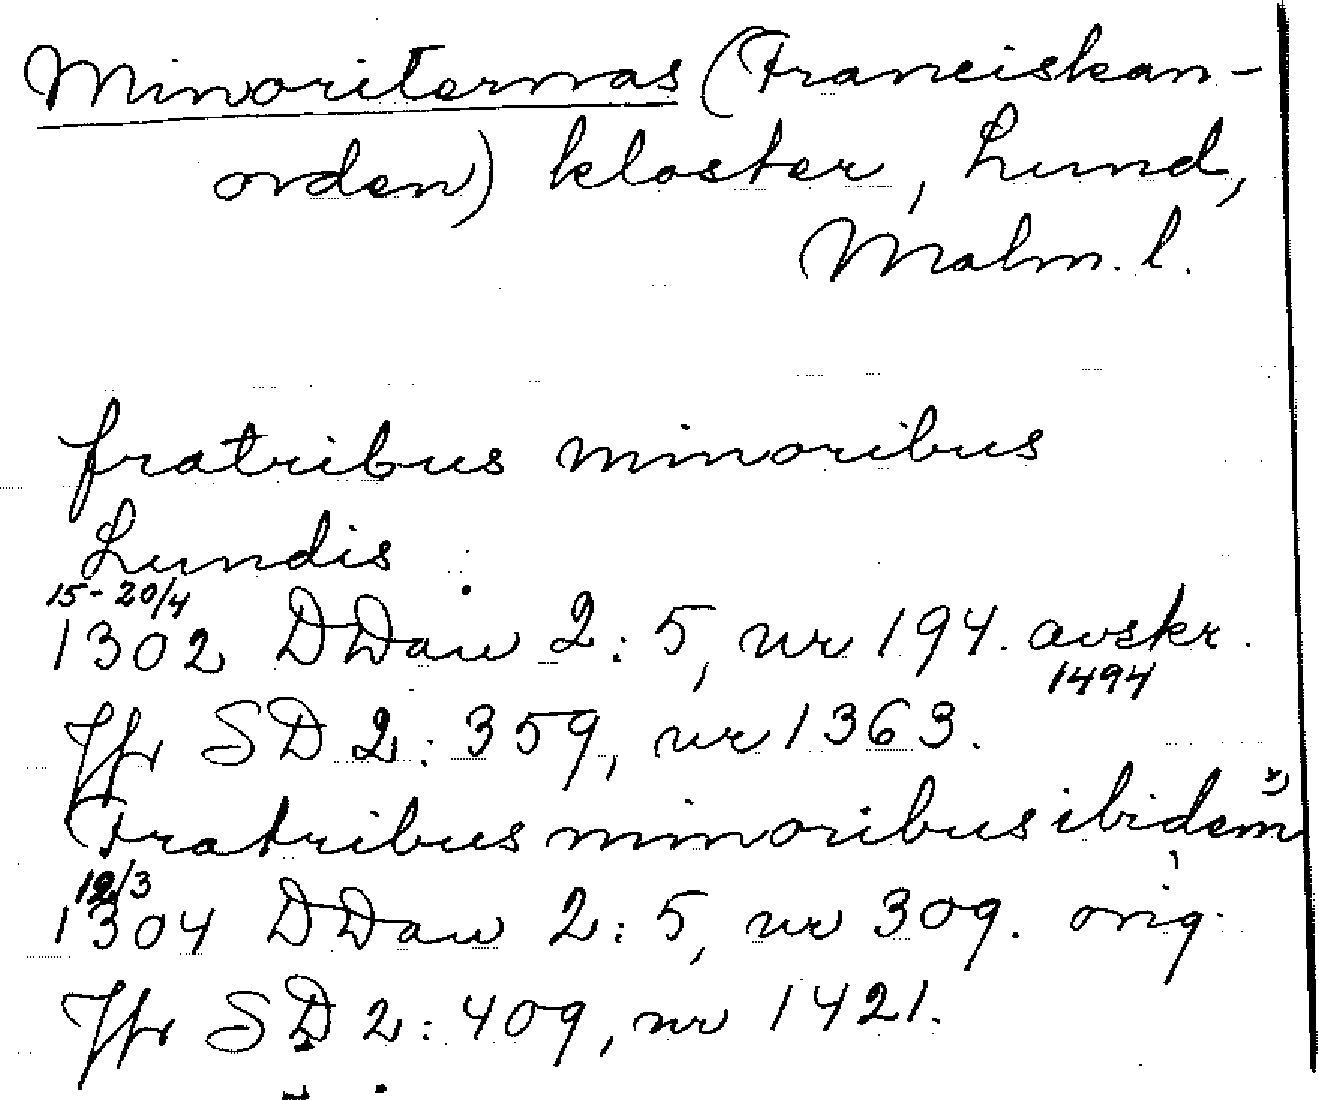 Minoriternas (Franciskan-
orden) kloster, Lund,
Malm. l.
fratribus minoribus
Lundis
15-20/4
1302 DDan 2:5, nr 194. avskr.
1494
Jfr SD 2:359, nr 1363.
Fratribus minoribus ibidem x)
12/3
1304 DDan 2:5, nr 309. orig.
Jfr SD 2:409, nr 1421.